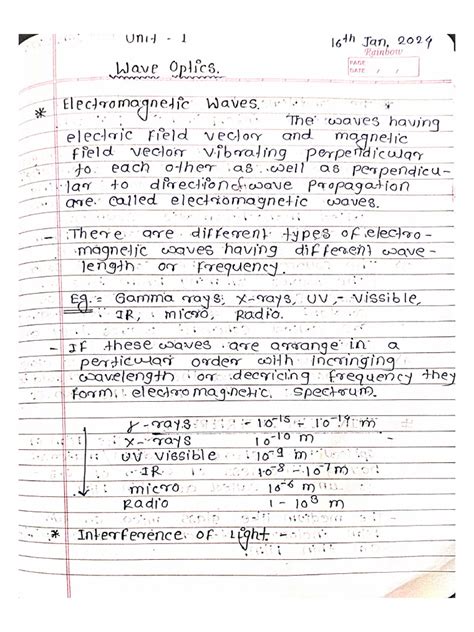 Unit - 1
16th Jan, 2024
Rainbow
PAGE
DATE / /
Wave Optics.
* Electromagnetic Waves.
The waves having
electric field vector and magnetic
field vector vibrating perpendicular
to each other as well as perpendicu-
lar to direction of wave propagation
are called electromagnetic waves.
- There are different types of electro-
magnetic waves having different wave-
length or frequency.
Eg. = Gamma rays, X-rays, UV, - Vissible,
IR, micro, Radio.
- If these waves are arrange in a
perticular order with incringing
wavelength or decricing frequency they
form electromagnetic spectrum.
γ - rays - 10-15 - 10-14 m
X - rays 10-10 m
UV Vissible 10-9 m
IR 10-8 - 10-7 m
micro 10-6 m
Radio 1 - 103 m
* Interference of Light -